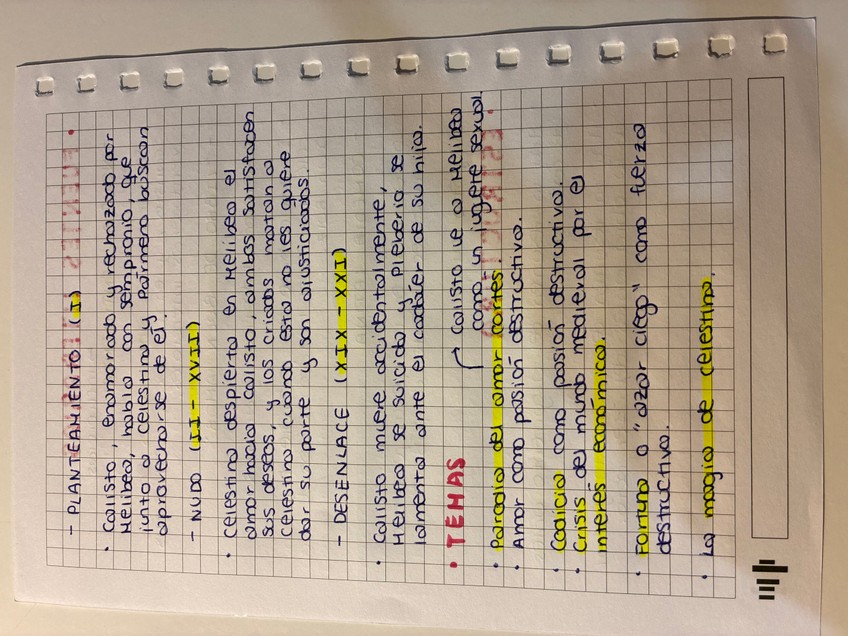 - PLANTEAMIENTO (I)
• Calisto, enamorado y rechazado por
Melibea, habla con sempronio, que
junto a celestina y Pármeno buscan
aprovecharse de él.
- NUDO (II - XVII)
• Celestina despierta en Melibea el
amor hacia calisto, ambos satisfacen
sus deseos, y los criados matan a
Celestina cuando esta no les quiere
dar su parte y son ajusticiados.
- DESENLACE (XIX - XXI)
• Calisto muere accidentalmente,
Melibea se suicida y Pleberio se
lamenta ante el cadáver de su hija.
• TEMAS
calisto ve a Melibea
como un jugete sexual.
• Parodia del amor cortés
• Amor como pasión destructiva.
• Codicia como pasión destructiva.
• Crisis del mundo medieval por el
interés económico.
• Fortuna o "azar ciego" como fuerza
destructiva.
• La magia de celestina.